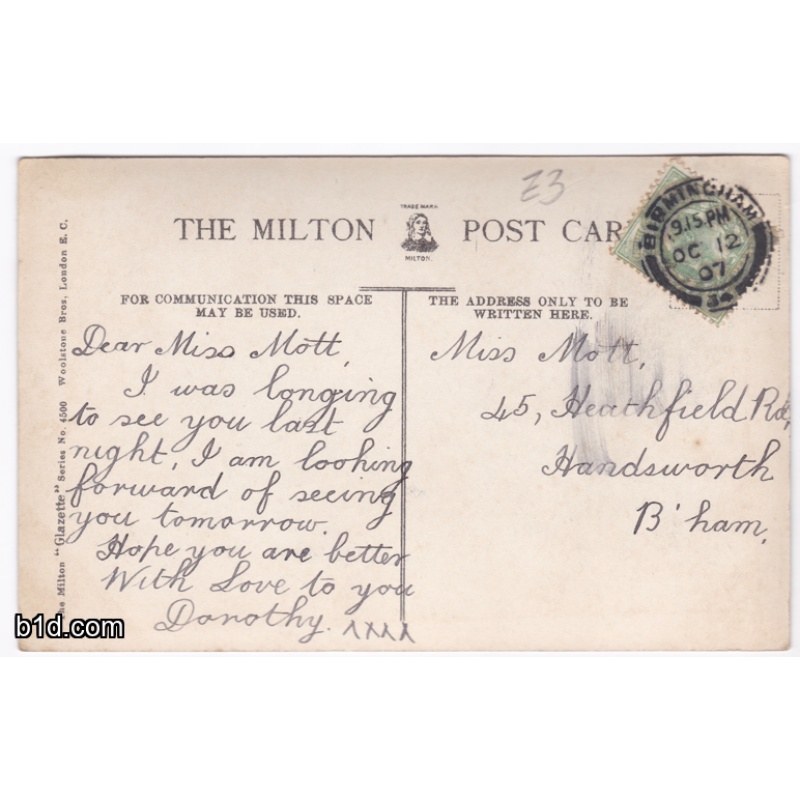 E3
TRADE MARK
THE MILTON POST CAR
MILTON.
BIRMINGHAM
9.15 PM
OC 12
07
34
FOR COMMUNICATION THIS SPACE
MAY BE USED.
THE ADDRESS ONLY TO BE
WRITTEN HERE.
Dear Miss Mott,
I was longing
to see you last
night, I am looking
forward of seeing
you tomorrow.
Hope you are better
With Love to you
Dorothy. xxxx
Miss Mott,
45, Heathfield Rd,
Handsworth
B'ham,
he Milton "Glazette" Series No. 4500 Woolstone Bros., London E. C.
b1d.com